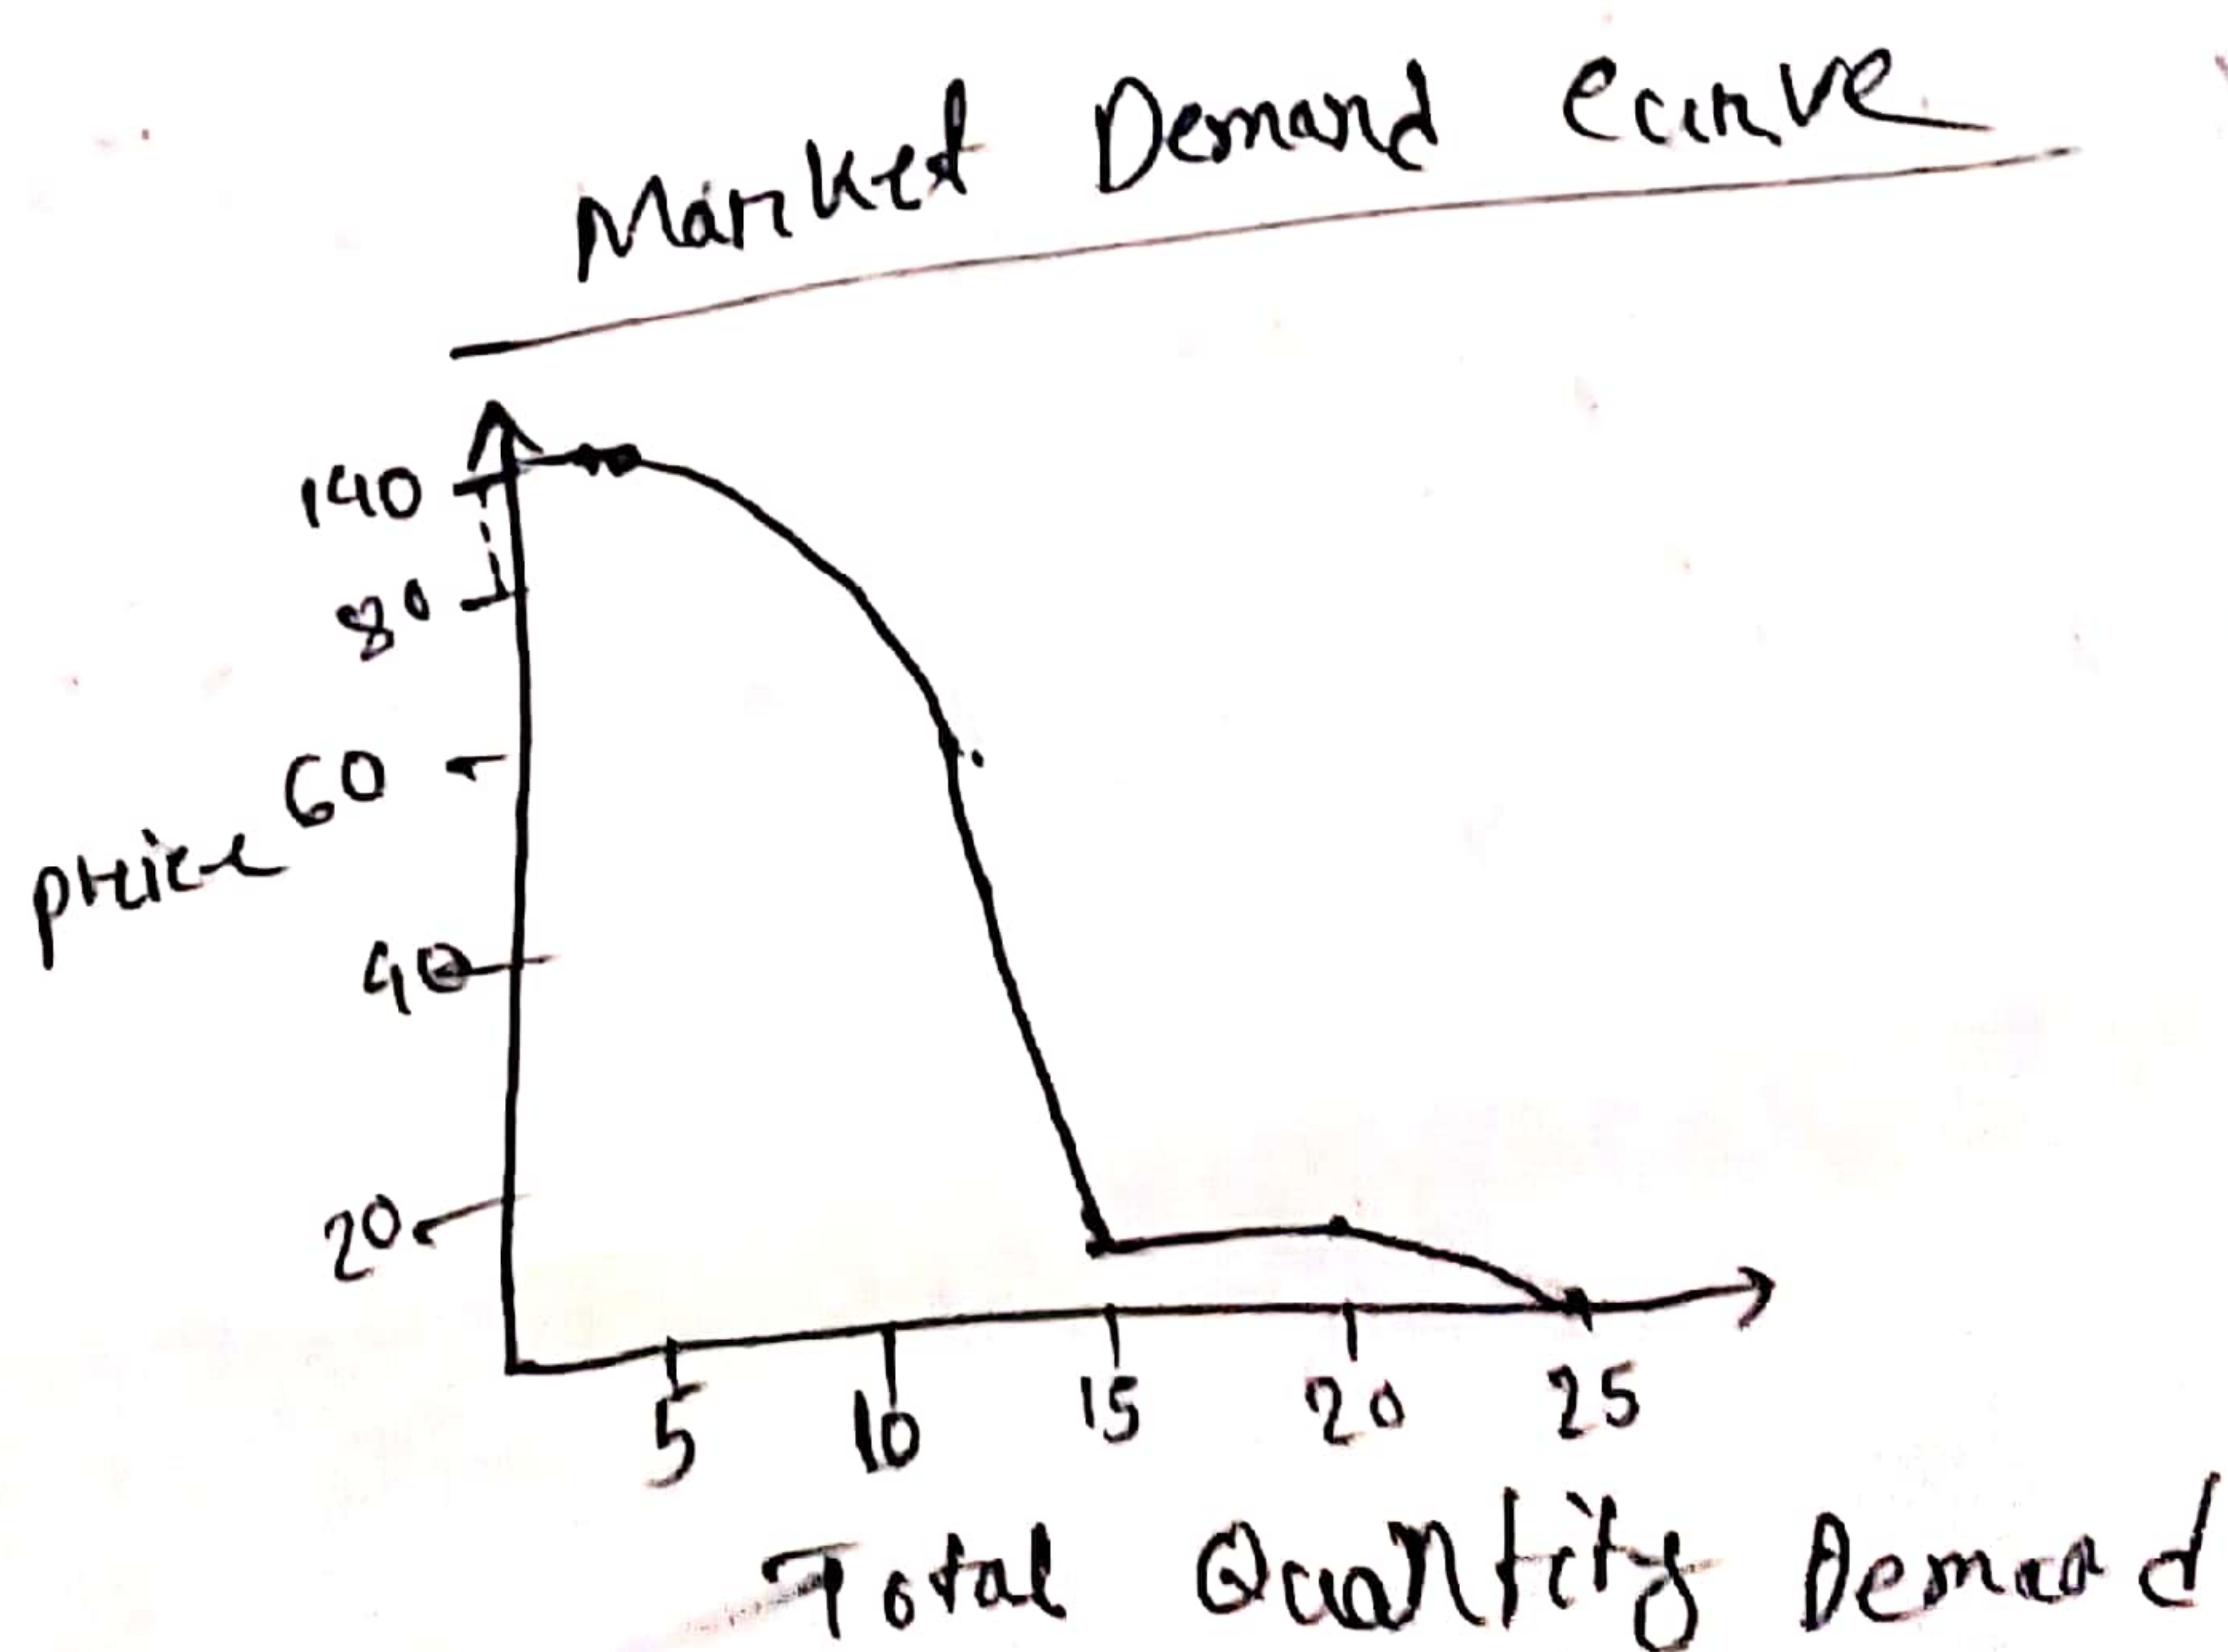 Market Demand Curve
140
80
60
price
40
20
5 10 15 20 25
Total Quantity Demand